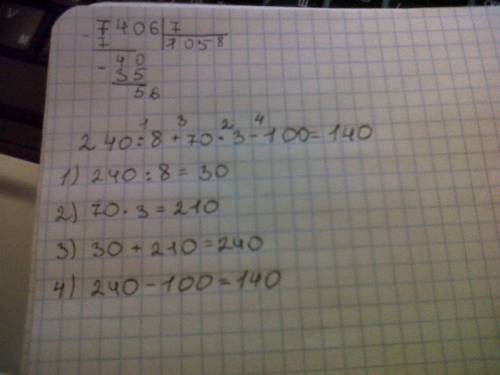 - 7406 | 7
7 7058
- 40
35
56
1 3 2 4
240:8+70·3-100=140
1) 240:8=30
2) 70·3=210
3) 30+210=240
4) 240-100=140